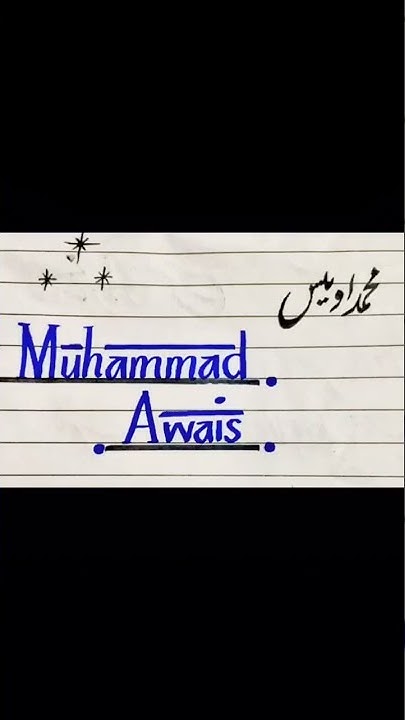 محمد اویس
Muhammad
Awais